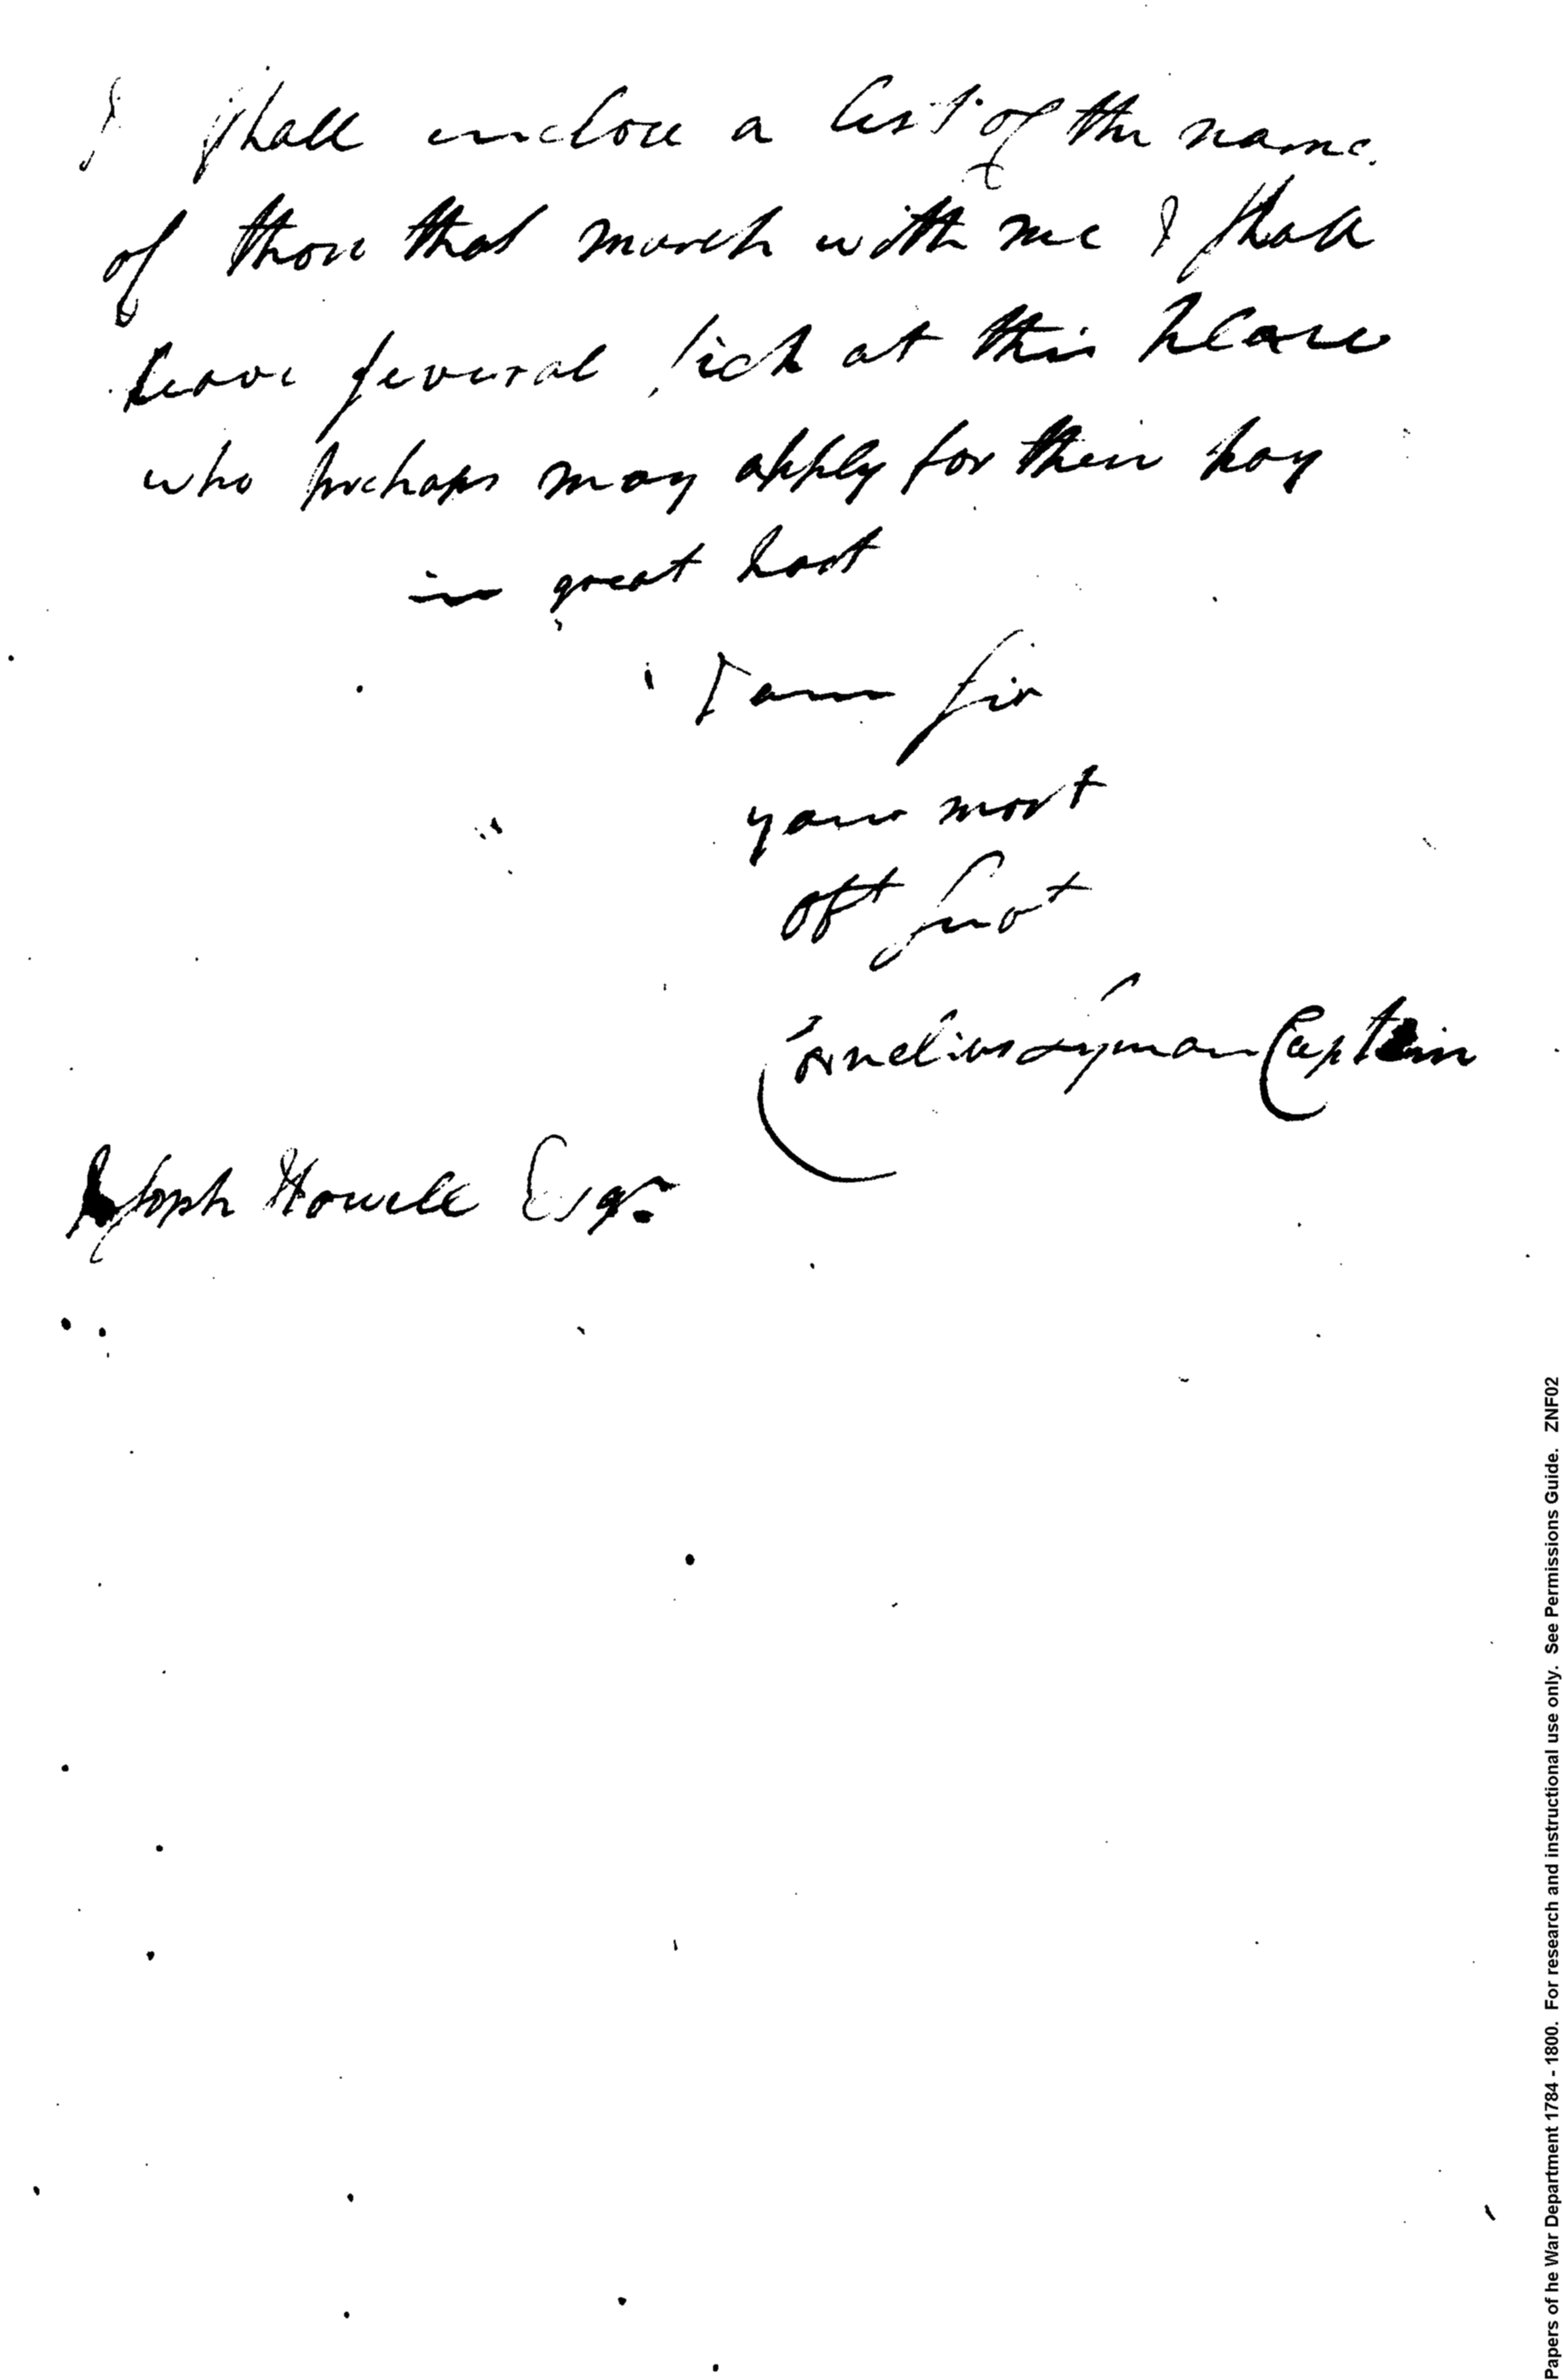 I shall enclose a list of the name
of those that march with me I shall
leave several sick at this place
who perhaps may apply for their pay
in great hast
I am Sir
your most
obt Servt
Cornelius Lyman Captain
Joseph Howell Esqr.
Papers of he War Department 1784 - 1800. For research and instructional use only. See Permissions Guide. ZNF02